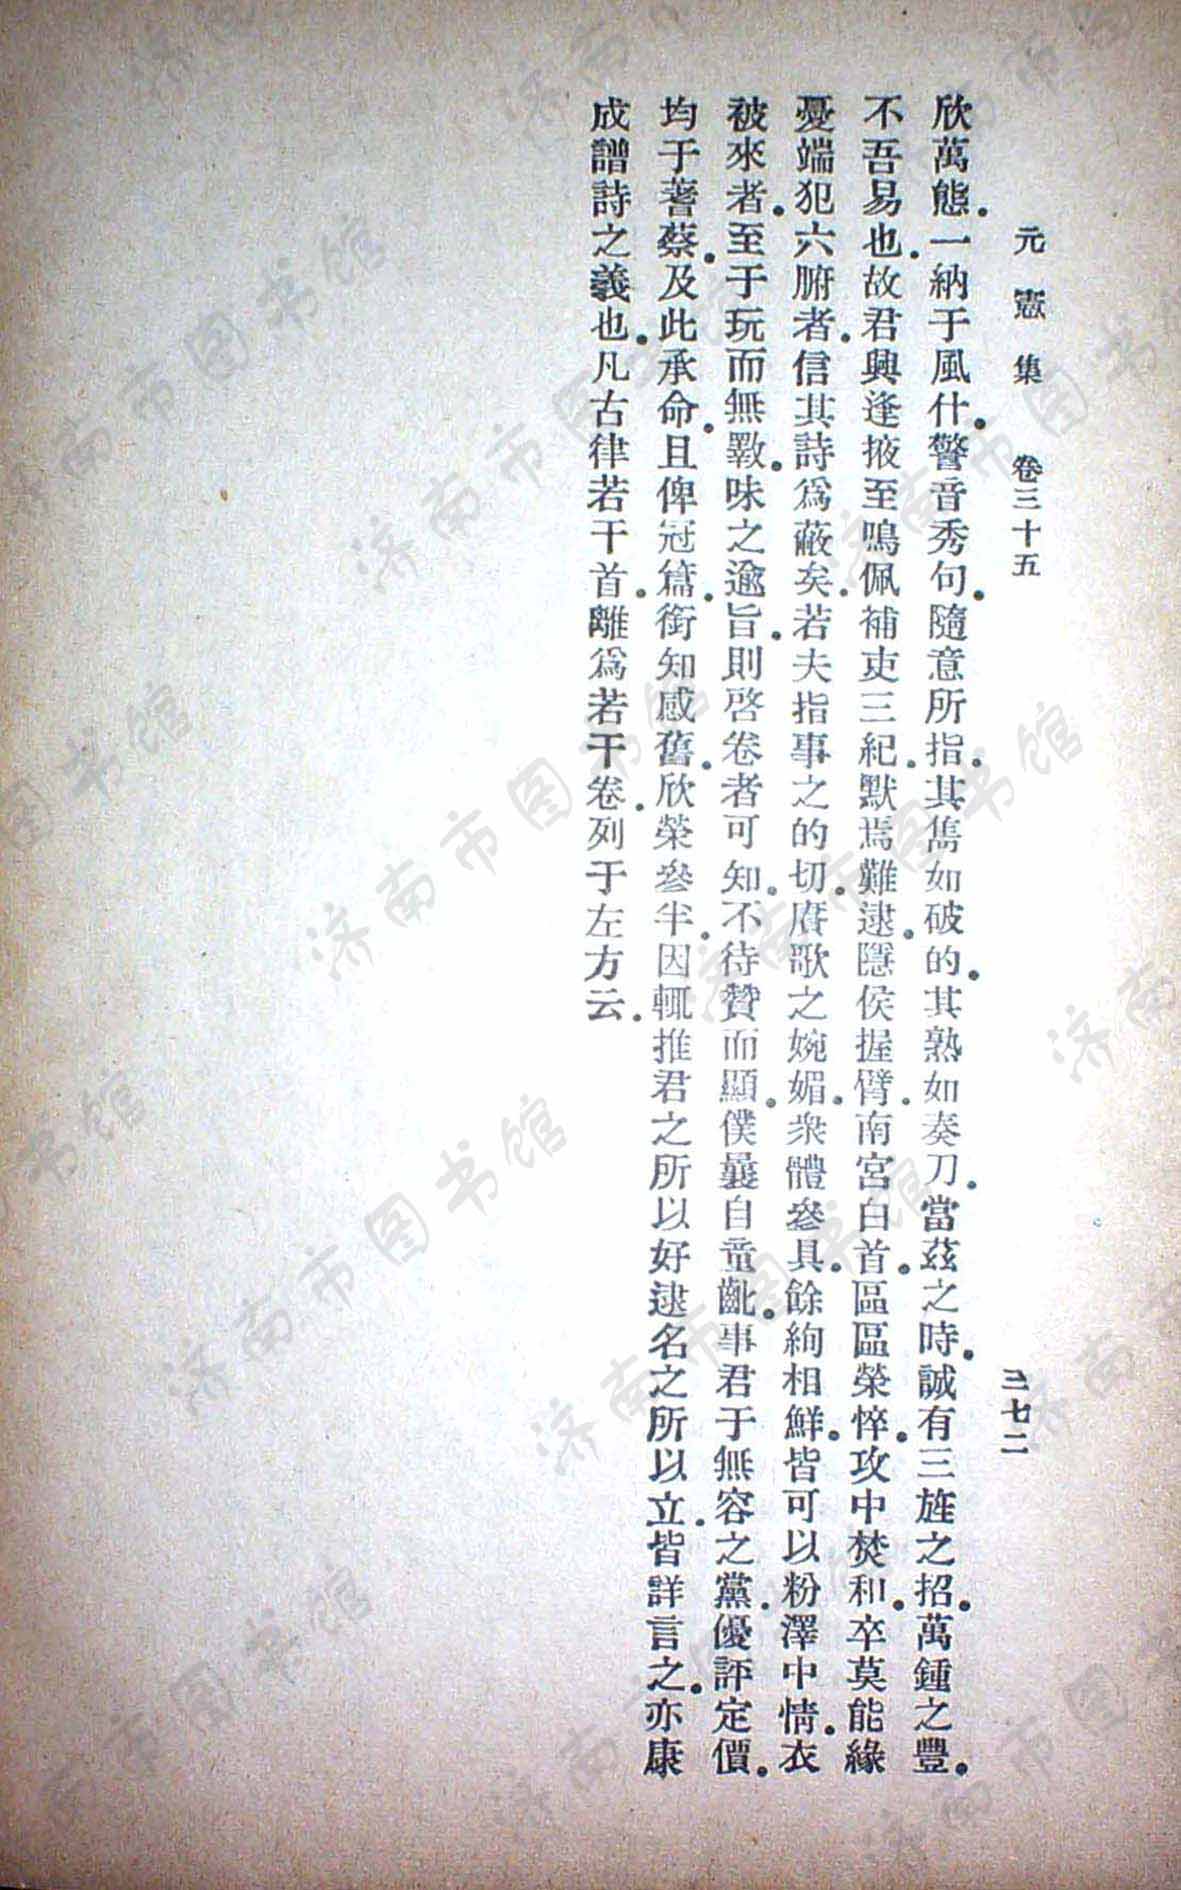 元憲集　卷三十五　三七二
欣萬態。一納于風什。警音秀句。隨意所指。其雋如破的。其熟如奏刀。當茲之時。誠有三旌之招。萬鍾之豐。
不吾易也。故君興逢掖至鳴佩補吏三紀。默焉難逮。隱侯握臂。南宮白首。區區榮悴。攻中焚和。卒莫能緣
憂端犯六腑者。信其詩爲蔽矣。若夫指事之的切。賡歌之婉媚。衆體參具。餘絢相鮮。皆可以粉澤中情。衣
被來者。至于玩而無斁。味之逾旨。則啓卷者可知。不待贊而顯。僕曩自童齔。事君于無容之黨。優評定價。
均于蓍蔡。及此承命。且俾冠篇。銜知感舊。欣榮參半。因輒推君之所以好逑名之所以立。皆詳言之。亦康
成譜詩之義也。凡古律若干首。離爲若干卷。列于左方云。
济南市图书馆